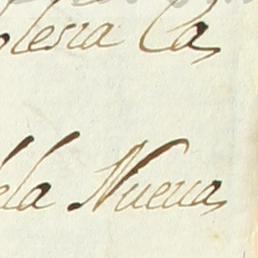 olesia Ca
dela Nueua